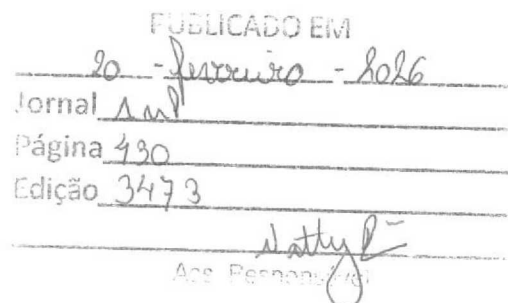 PUBLICADO EM
20 - fevereiro - 2026
Jornal AMP
Página 430
Edição 3473
Ass. Responsável